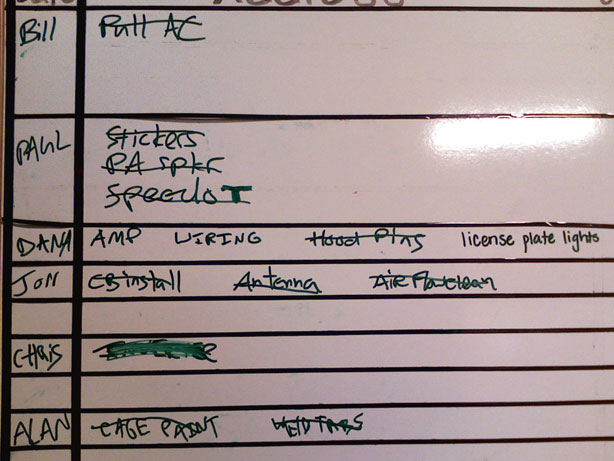 Bill Pull AC
PAUL Stickers
PA spkr
Speedo T
DANA AMP WIRING Hood Pins license plate lights
JON CB install Antenna Air Flow clean
CHRIS
ALAN CAGE PAINT WELD TABS